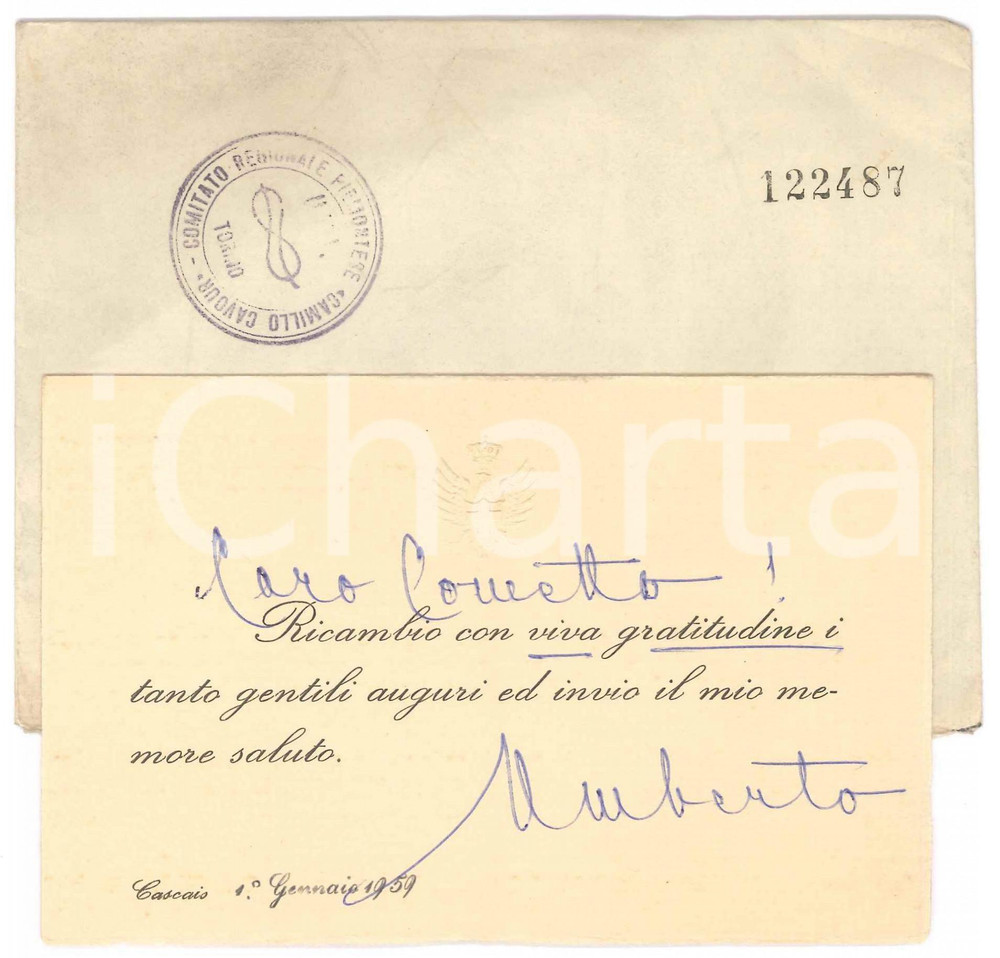 COMITATO REGIONALE PIEMONTESE «CAMILLO CAVOUR» -
TORINO
122487
iCharta
Caro Cometto !
Ricambio con viva gratitudine i
tanto gentili auguri ed invio il mio me-
more saluto.
Umberto
Cascais 1.° Gennaio 1959